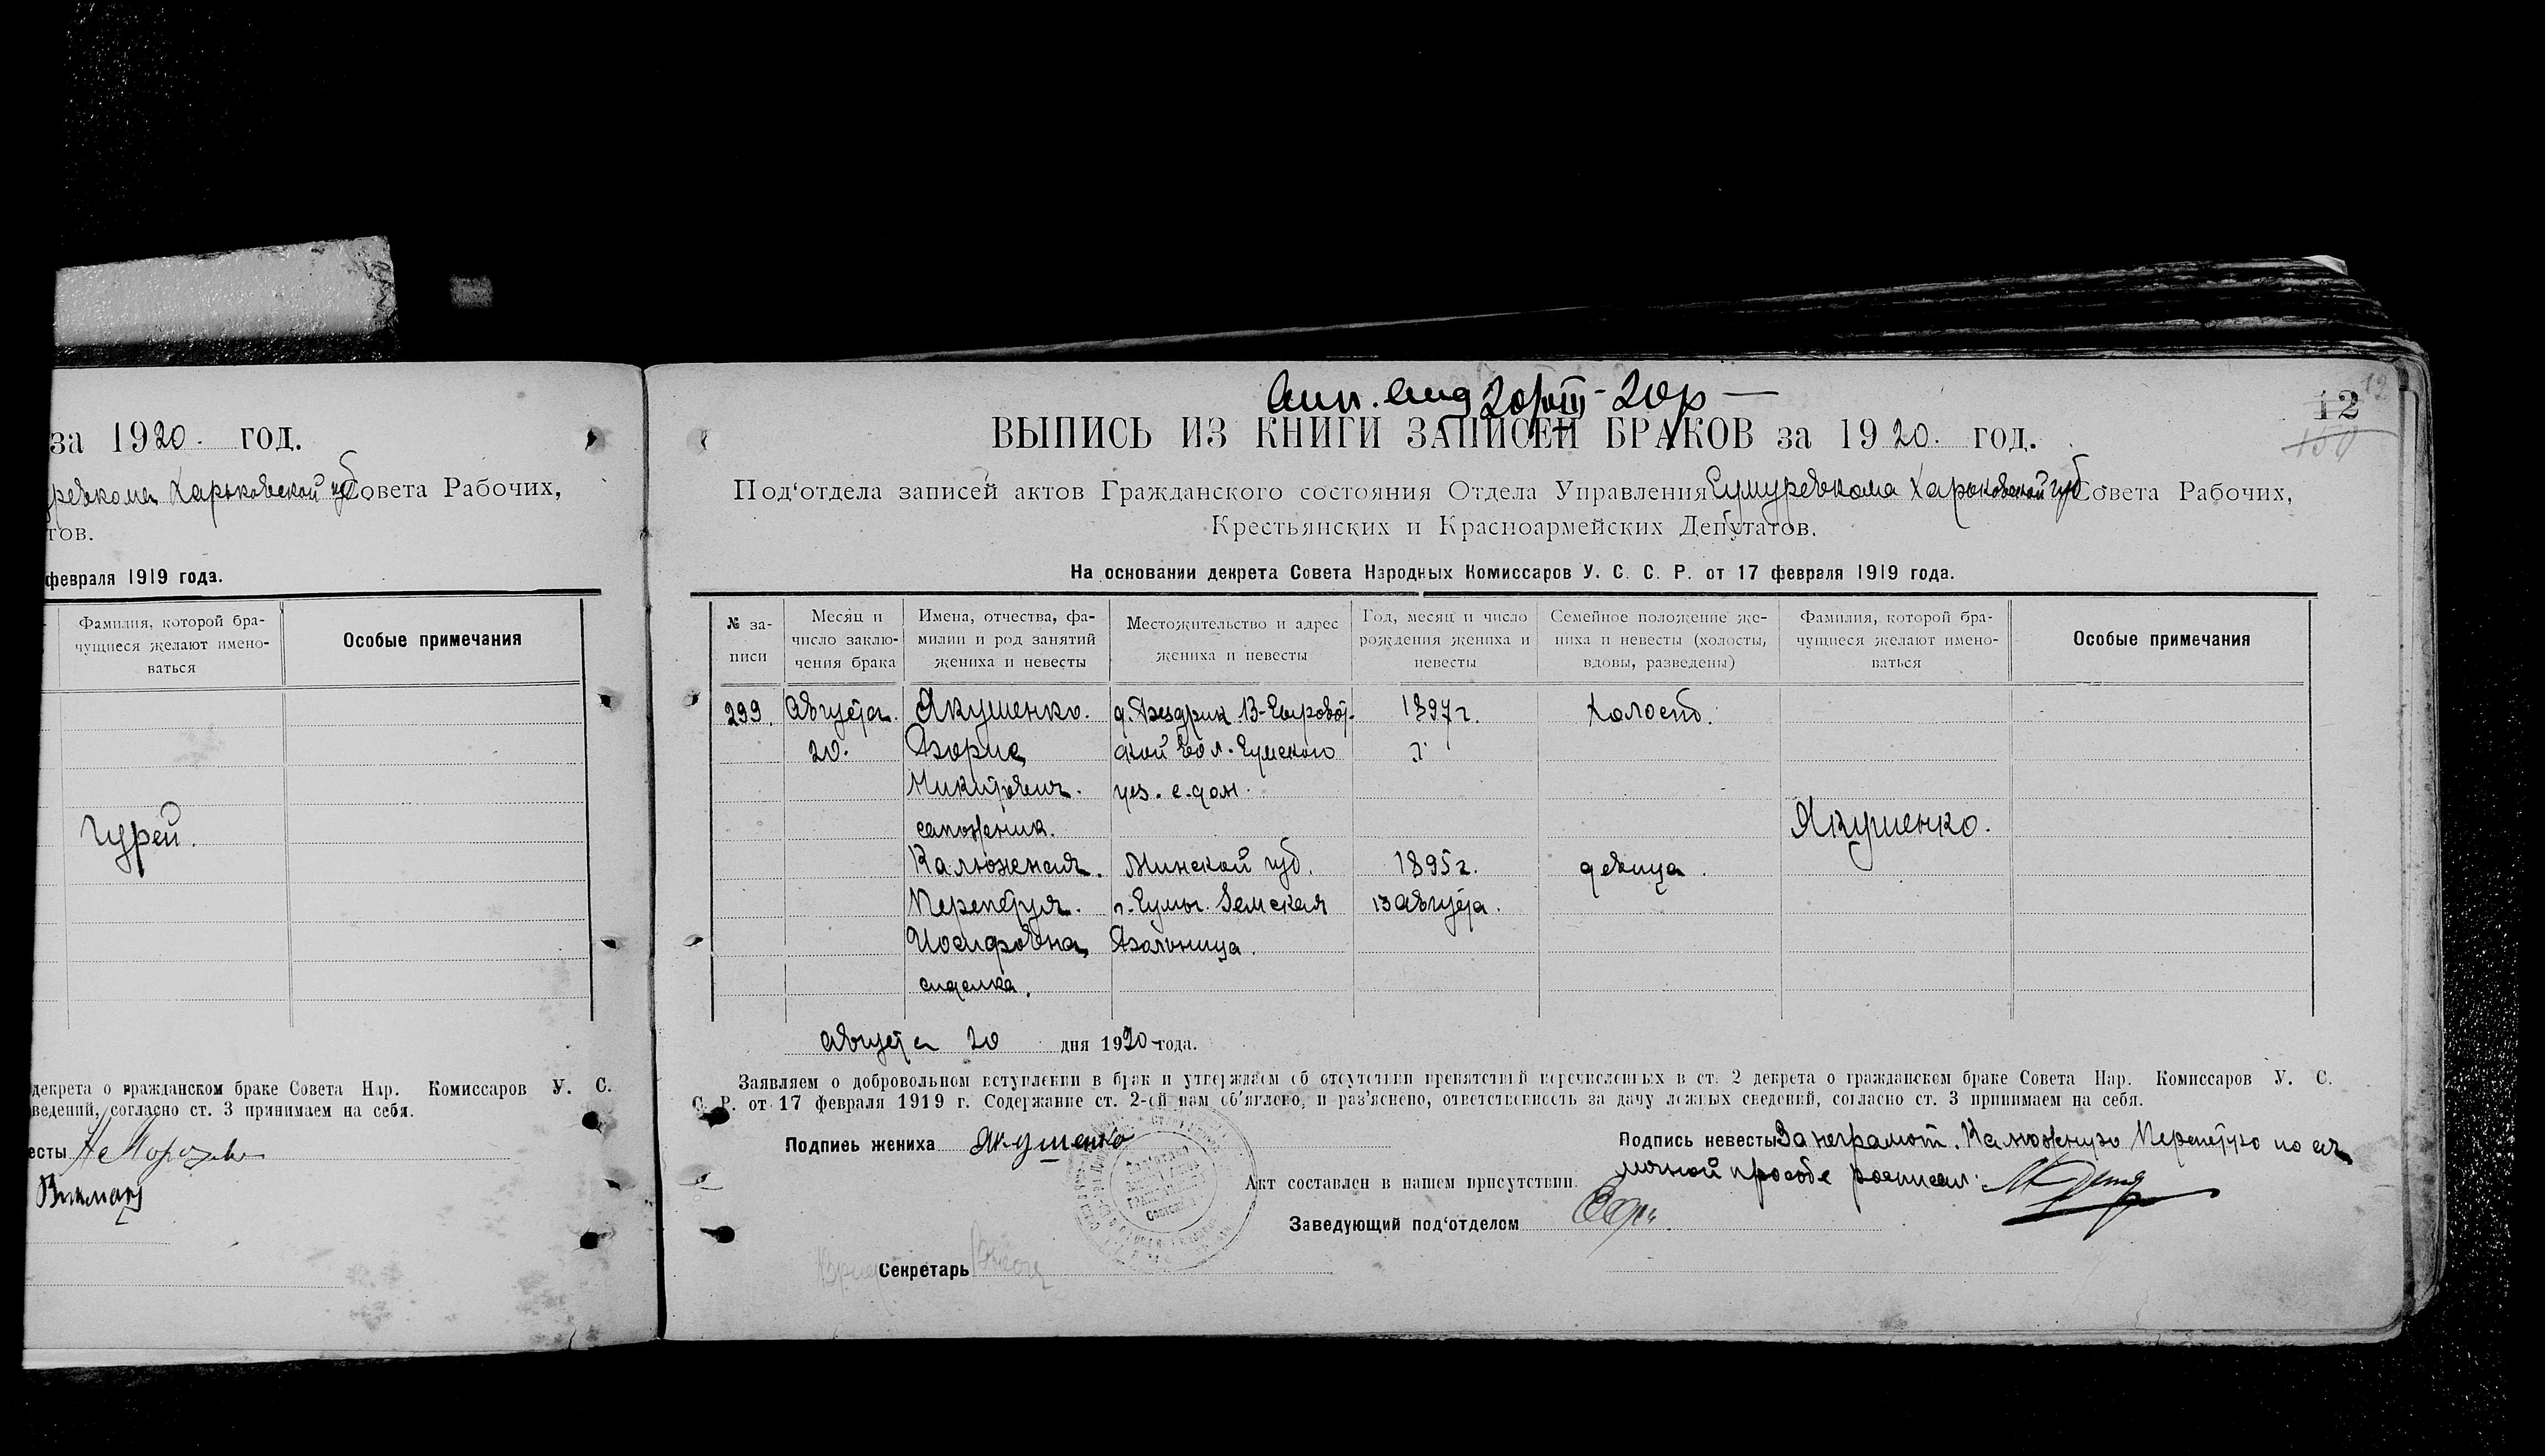 за 1920. год.
Харьковской губ Совета Рабочих,
тов.
февраля 1919 года.
Фамилия, которой бра-
чущиеся желают имено-
ваться
Особые примечания
Гурей.
декрета о гражданском браке Совета Нар. Комиссаров У. С.
ведений, согласно ст. 3 принимаем на себя.
есты
12
ВЫПИСЬ ИЗ КНИГИ ЗАПИСЕЙ БРАКОВ за 1920. год.
Под'отдела записей актов Гражданского состояния Отдела Управления Сумуревкома Харьковской губ Совета Рабочих,
Крестьянских и Красноармейских Депутатов.
На основании декрета Совета Народных Комиссаров У. С. С. Р. от 17 февраля 1919 года.
№ за-
писи
Месяц и
число заклю-
чения брака
Имена, отчества, фа-
милии и род занятий
жениха и невесты
Местожительство и адрес
жениха и невесты
Год, месяц и число
рождения жениха и
невесты
Семейное положение же-
ниха и невесты (холосты,
вдовы, разведены)
Фамилия, которой бра-
чущиеся желают имено-
ваться
Особые примечания
299. Августа. Якушенко. 1897 г. Холост.
20. Борис ской вол. Сумского
Никитович. уез. с. дом.
сапожник. Якушенко.
Калюжная. Минской губ. 1895 г. девица.
Перепетуя. г. Сумы. Земская 13 августа.
Иосифовна, Больница.
сиделка.
августа 20 дня 1920 года.
Заявляем о добровольном вступлении в брак и утверждаем об отсутствии препятствий перечисленных в ст. 2 декрета о гражданском браке Совета Нар. Комиссаров У. С.
С. Р. от 17 февраля 1919 г. Содержание ст. 2-ой нам об'явлено, и раз'яснено, ответственность за дачу ложных сведений, согласно ст. 3 принимаем на себя.
Подпись жениха Якушенко
Подпись невесты За неграмот. Калюжную Перепетую по ея
личной просьбе росписал
Акт составлен в нашем присутствии.
Заведующий под'отделом
Секретарь